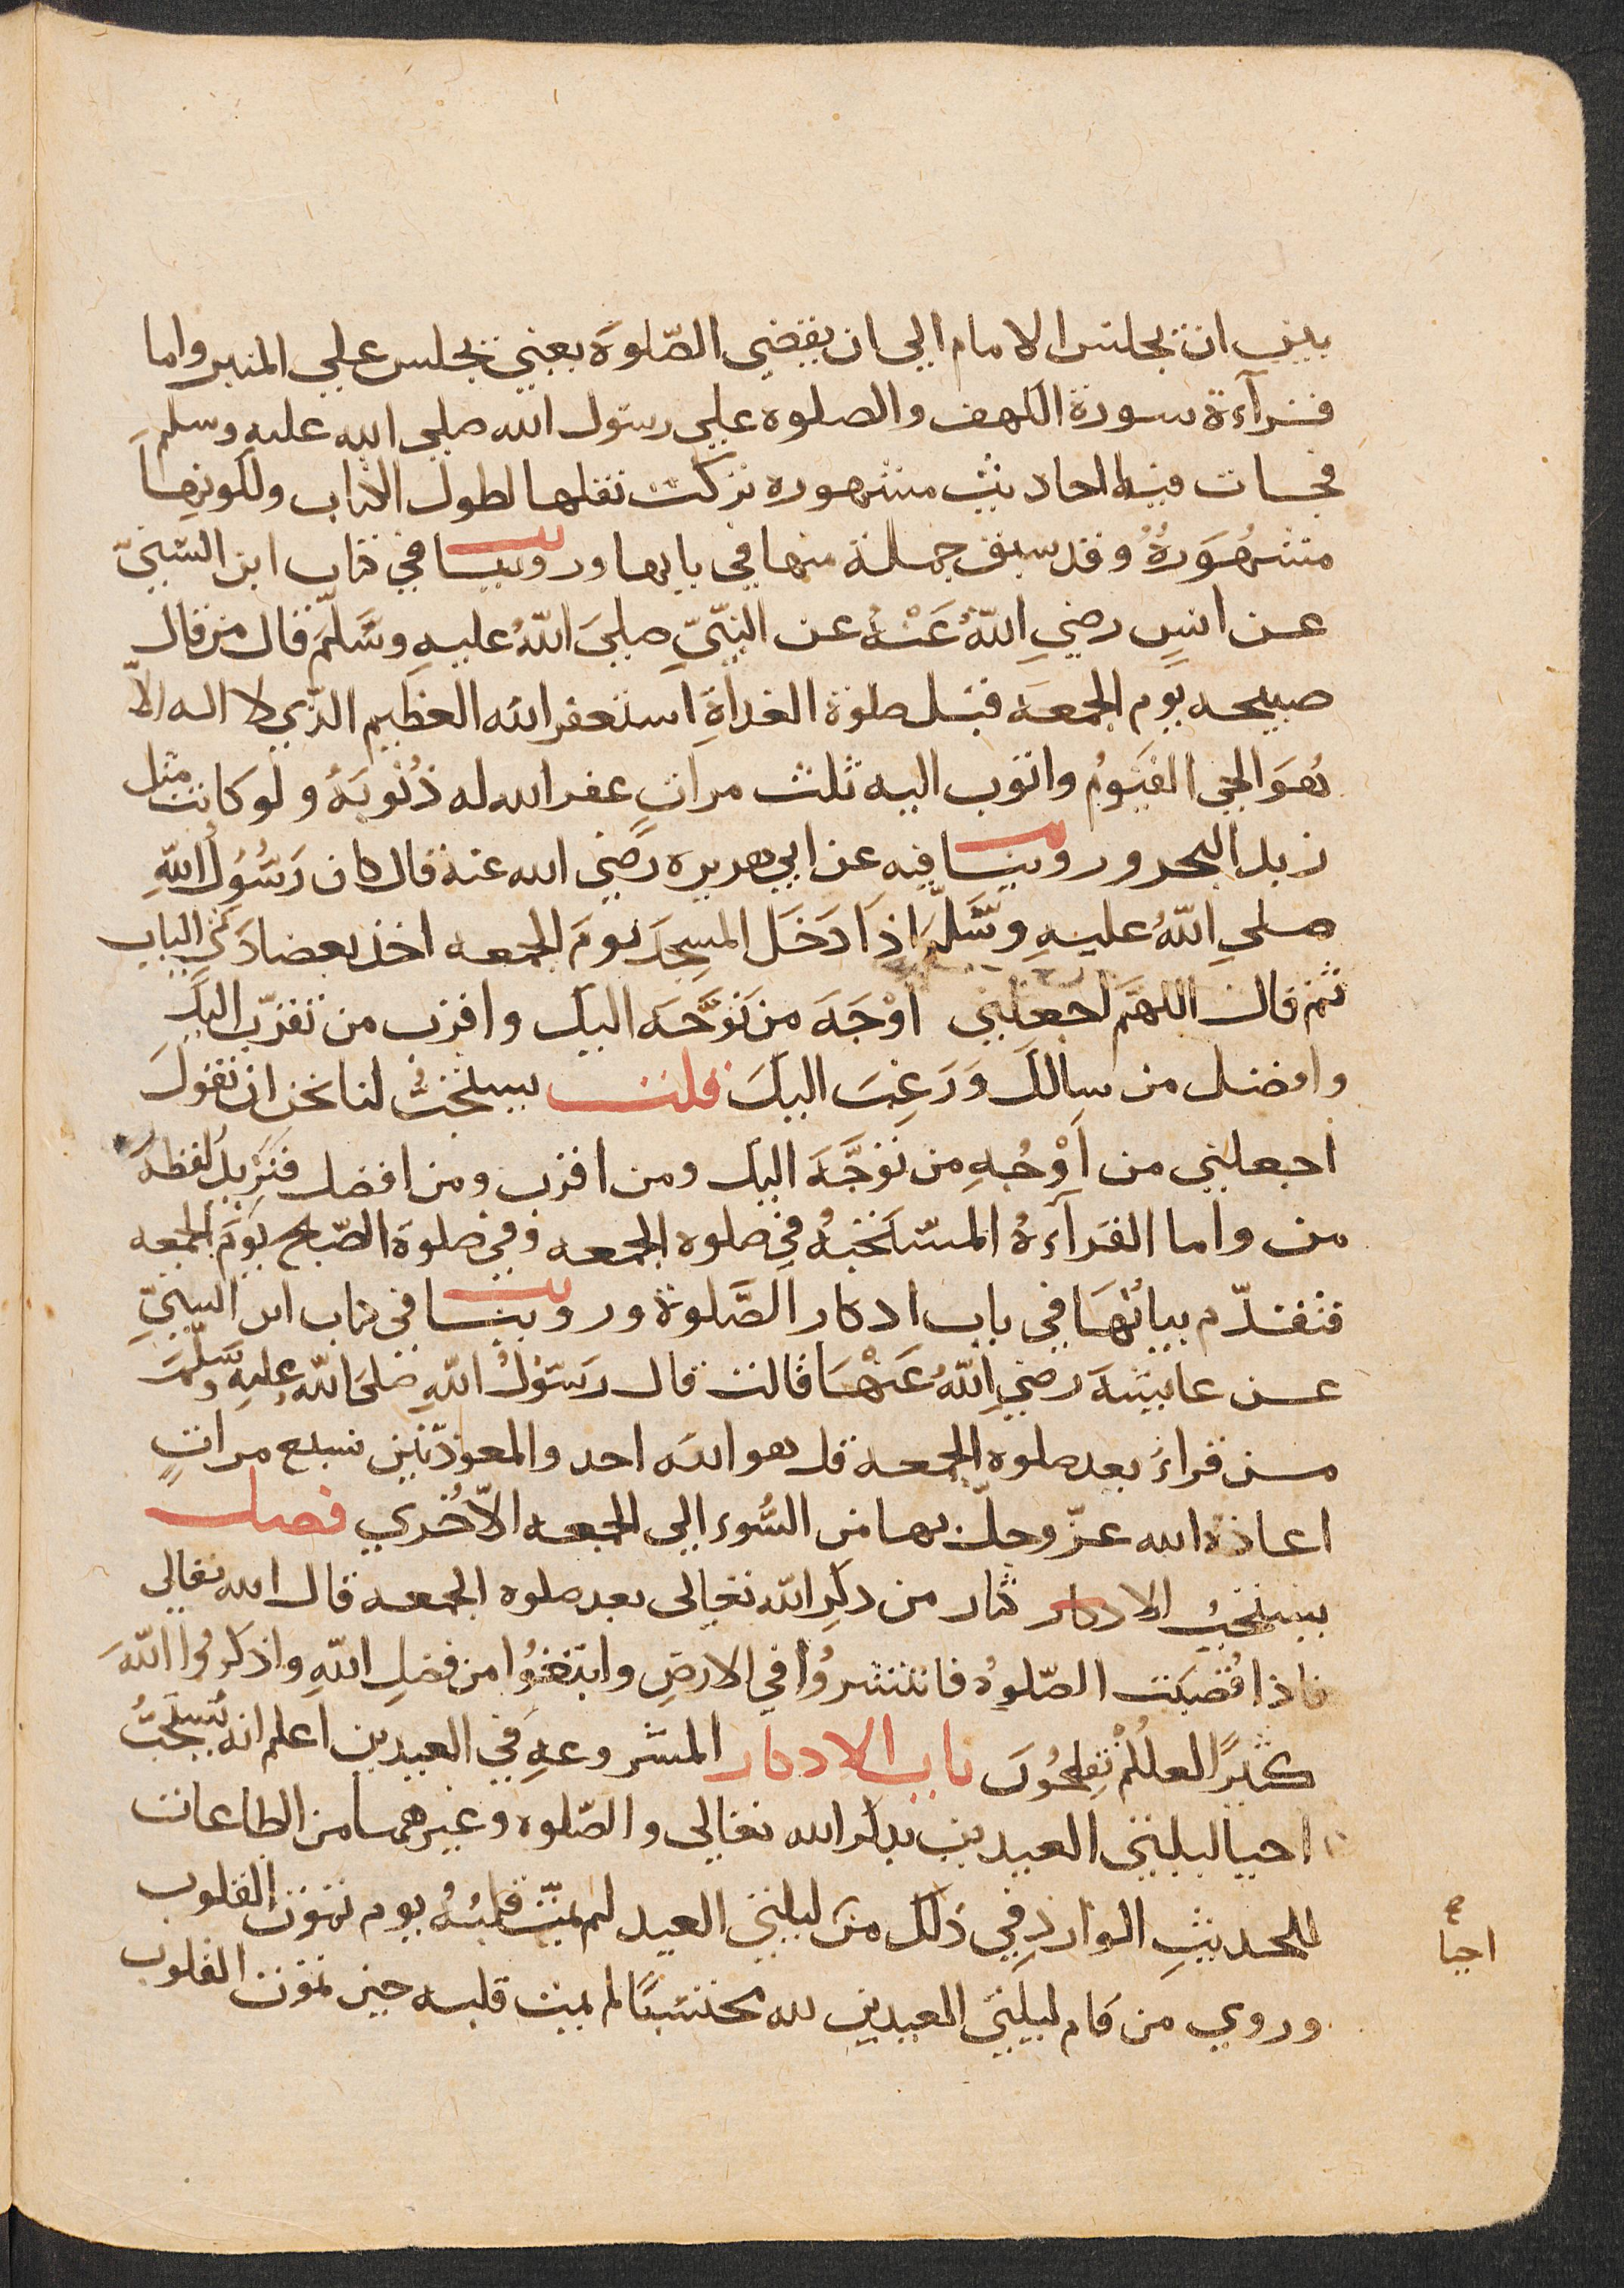 بين ان يجلس الامام الي ان يقضي الصّلوة يعني يجلس علي المنبر واما
قرآءة سورة الكهف والصلوه علي رسول الله صلي الله عليه وسلم
فجات فيها احاديث مشهوره تركت نقلها لطول الكتاب ولكونها
مشهُوَرةٌ وقد سبق جملة منها في بابها وروينا في كتاب ابن السّنيّ
عن انسٍ رضيِ اللّهُ عَنْهُ عن النبّيِّ صليَ اللّهُ عليهِ وسَّلمَّ قال من قال
صبيحه يوم الجمعه قبل صلوة الغداةِ استغفر الله العظيم الذّي لا اله الاّ
هُوَ الحي القيَوُم واتوب اليه ثلث مراتٍ غفر الله له ذُنوبَهُ ولو كانت مثل
زبد البحر وروينا فيه عن ابي هريره رضي الله عنه قال كان رَسُوُل اللّهِ
صلي اللّهُ عليهِ وسَّلمّ اذِا دَخَل المسجِدَ يومَ الجمعه اخذ بعضادتَي الباب
ثم قال اللهمّ اجعلني اَوْجَهَ من تَوَجَّهَ اليك واقرب من تقرّب اليك
وافضل من سالك وَرَغِبَ اليكَ قلت يستحبُّ لنا نحن ان نقولَ
اجعلني من اَوْجُهِ من توَجَّهَ اليك ومن اقرب ومن افضل فنَزِيدُ لفظه
من واما القرآءةُ المستَحَبهُ في صلوه الجمعه وفي صلوة الصّبح يَوَم الجمعه
فتقدّم بيانُهَا في باب اذكار الصَّلوة وروينا في كتاب ابن السنيِّ
عن عايشهَ رضيِ اللّهُ عَنْهَا قالت قال رسَوُلُ اللّهِ صلىَ اللّهُ عليِهِ وسَّلمَّ
من قراءَ بعد صلوه الجمعه قل هو الله احد والمعوذّتين سبع مراتٍ
اعاذهُ الله عزّ وجلّ بها من السُّوء الى الجمعه الاّخُري فصل
يستحبُ الاكثار من ذكرِ اللّه تعالى بعد صلوه الجمعه قال الله تعالى
فاذا قُضيَت الصّلوهُ فانتشرُوا في الارضِ وابتغوُا من فضلِ اللّهِ واذكرُوا اللّهَ
كثيرًا لعلكُمْ تفِلحُوَن باب الاذكار المشروعهِ في العيدين اعلم انهُ يُستحَبُّ
احيا ليلتي العيدين بذكر الله تعالى والصّلوه وغيرهما من الطاعات
للحديثِ الوارد في ذلك من ليلتي العيد لم يَمُت قلبُهُ يوم تموَت القلوب
وروي من قام ليلتيَ العيدين لله محتسبًا لم يمت قلبه حين تموت القلوب
احيا